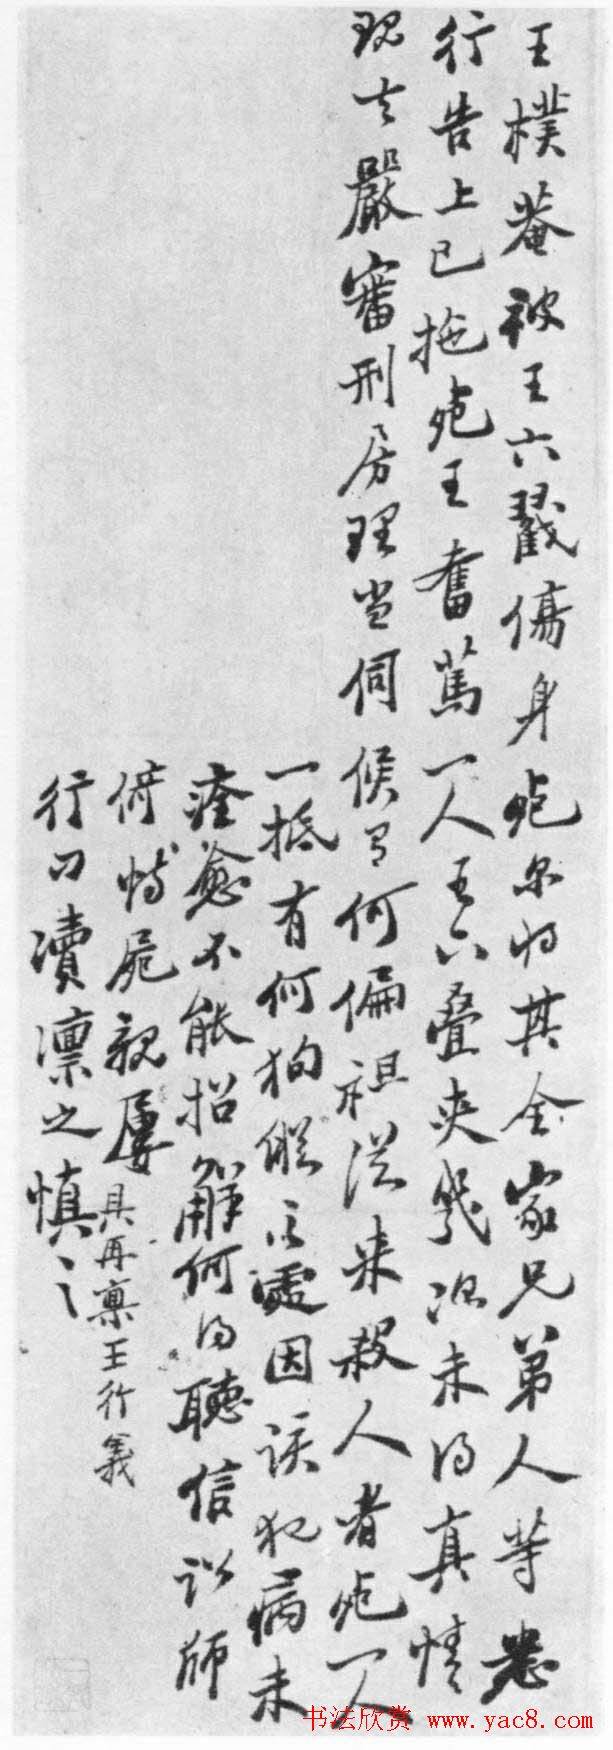 王樸菴被王六戳傷身死尔将其全家兄弟人等悉
行告上已拖死王奮篤一人王六叠夹几次未得真情
現在嚴審刑房理当伺候有何偏袒从来殺人者死一人
一抵有何徇縱之處因该犯病未
痊愈不能招解何得聽信訟師
倚恃屍親屢
具再禀王行義
行刁瀆凛之慎之
书法欣赏 www.yac8.com